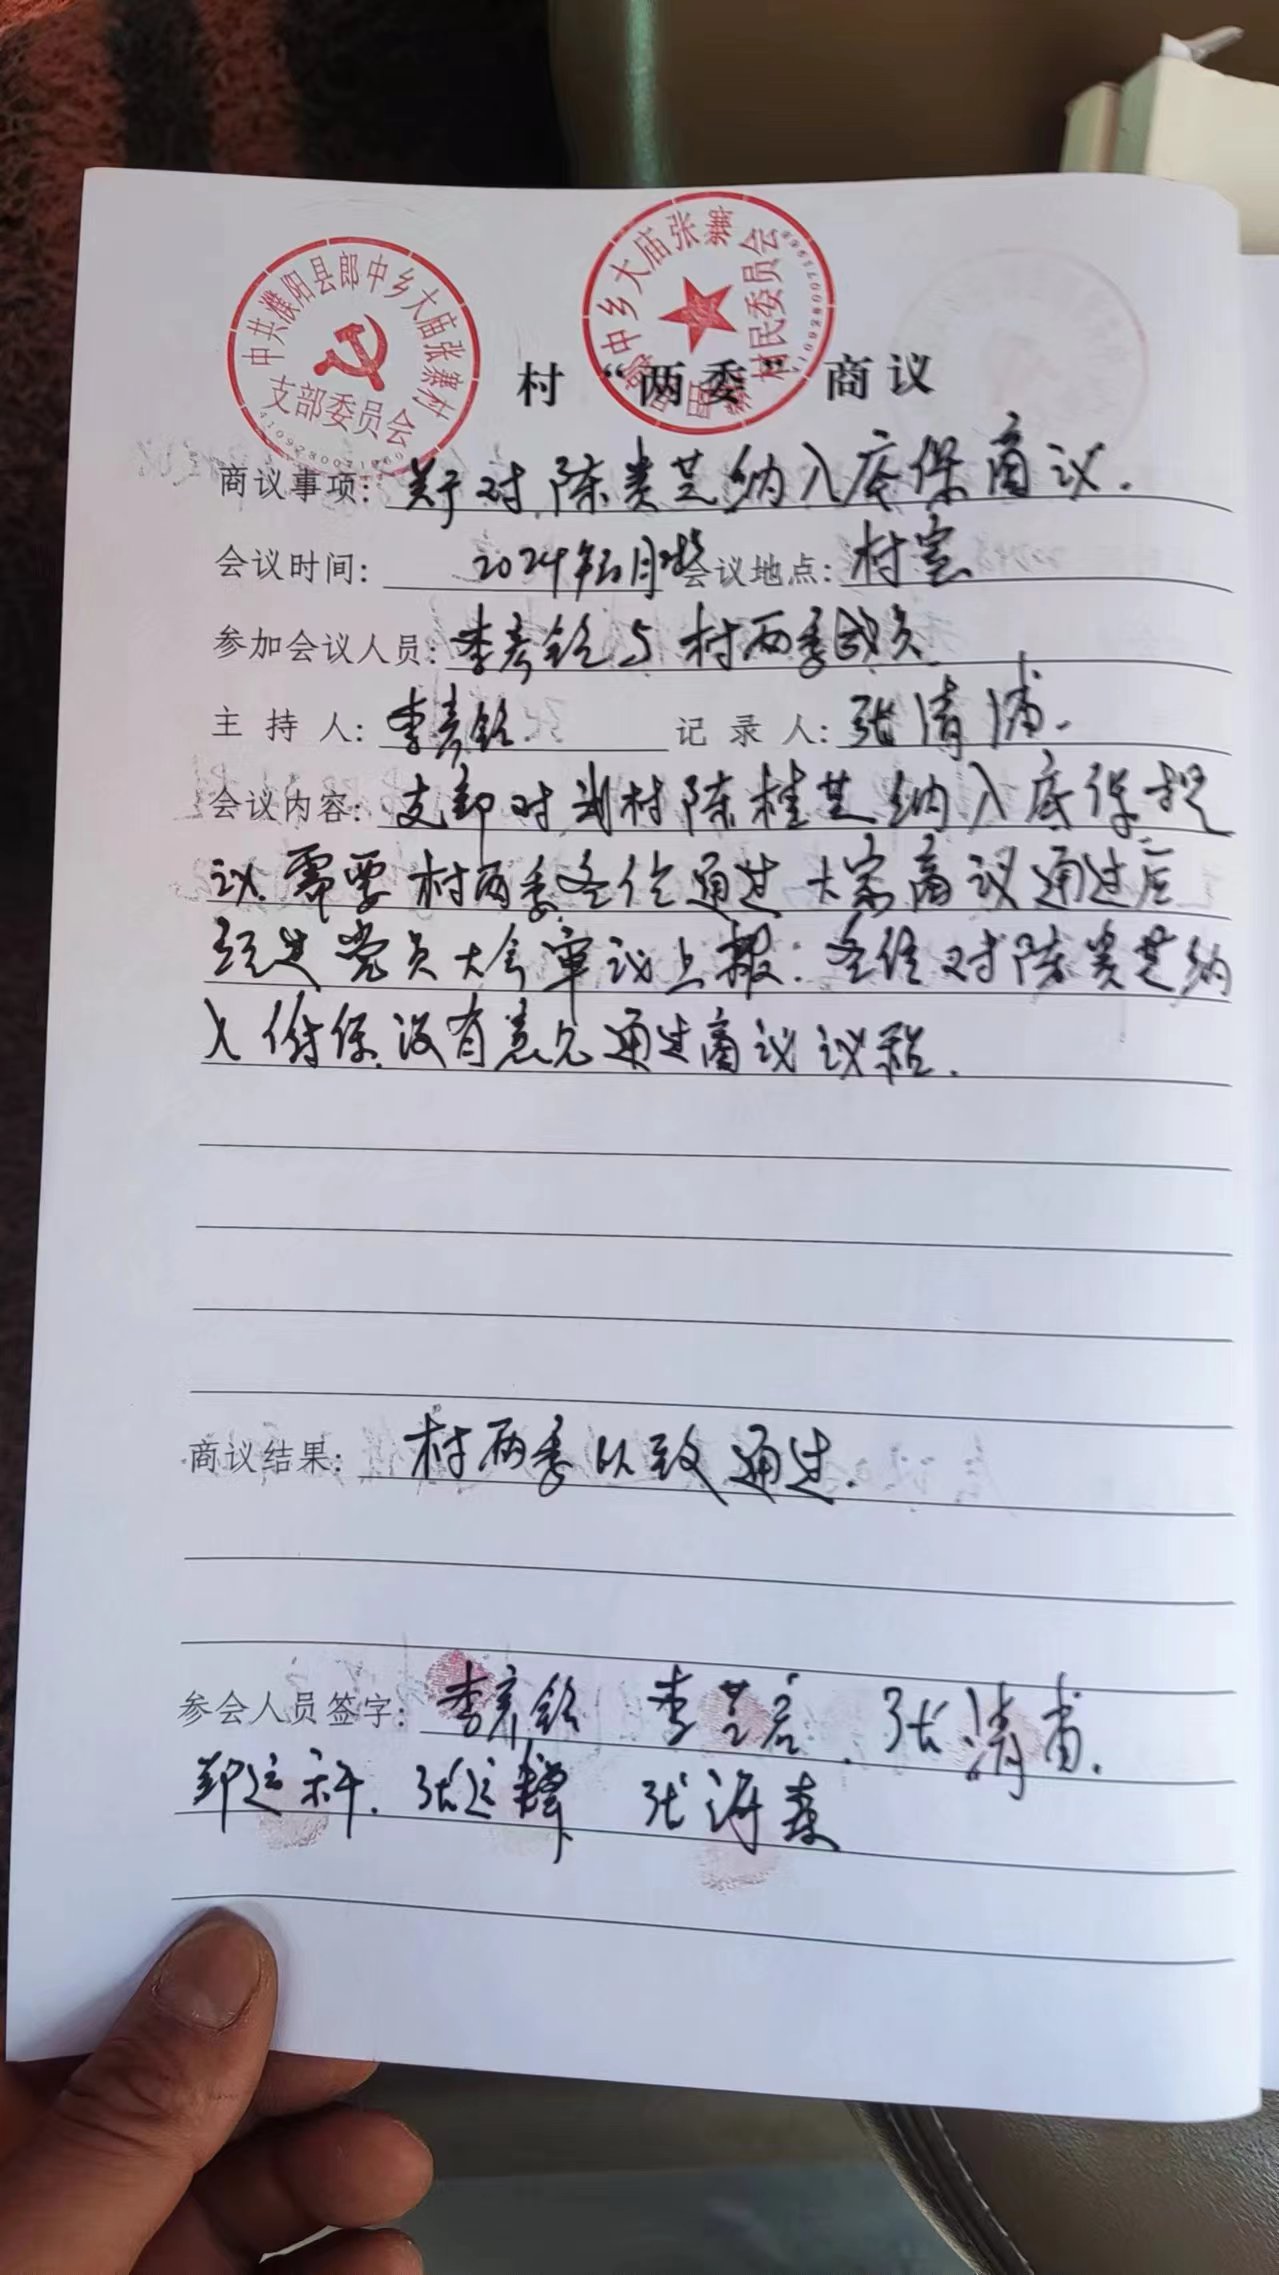 中共濮阳县郎中乡大庙张寨村
支部委员会
中乡大庙张寨
村民委员会
村“两委”商议
商议事项：关于对陈贵芝纳入底保商议.
会议时间：2024年 月 会议地点：村室
参加会议人员：李彦 与村两委成员
主持人：李彦 记录人：张清浦.
会议内容：支部对我村陈桂芝纳入底保提
议需要村两委 通过 大家商议通过后
党员大会审议上报： 对陈贵芝纳
入 保没有意见通过商议议程.
商议结果：村两委以致通过.
参会人员签字：李彦 李 张清
郑 科. 张 张海森